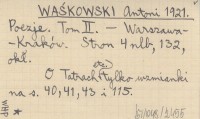 WAŚKOWSKI Antoni 1921.
Poezje. Tom II. — Warszawa-
-Kraków. Stron 4 nlb, 132,
okł.
O Tatrach (są) tylko wzmianki
na s. 40, 41, 43 i 115.
WHP
*